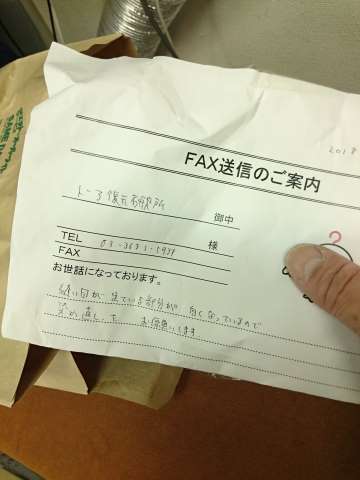 2018
FAX送信のご案内
トーア復元研究所
御中
様
TEL 03-3631-5939
FAX
お世話になっております。
縫い目が出ている部分が白くなっているので
染め直しをお願いします